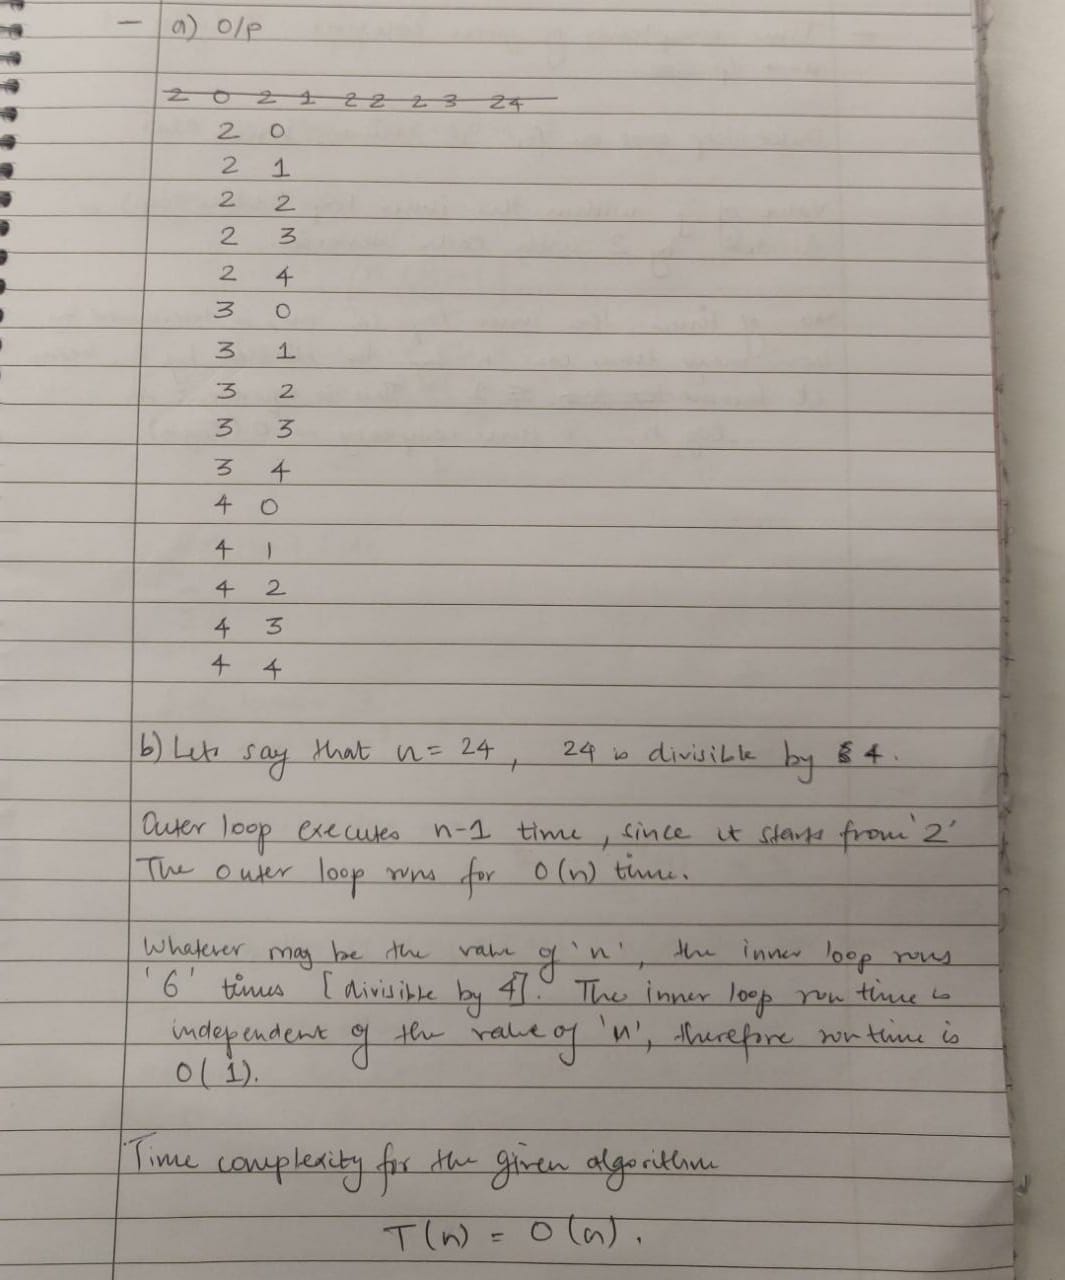 — a) O/P
2 0 2 1 2 2 2 3 24
2 0
2 1
2 2
2 3
2 4
3 0
3 1
3 2
3 3
3 4
4 0
4 1
4 2
4 3
4 4
b) Lets say that n = 24, 24 is divisible by 4.
Outer loop executes n-1 time, since it starts from '2'
The outer loop runs for O(n) time.
Whatever may be the value of 'n', the inner loop runs
'6' times [divisible by 4]. The inner loop run time is
independent of the value of 'n', therefore run time is
O(1).
Time complexity for the given algorithm
T(n) = O(n).